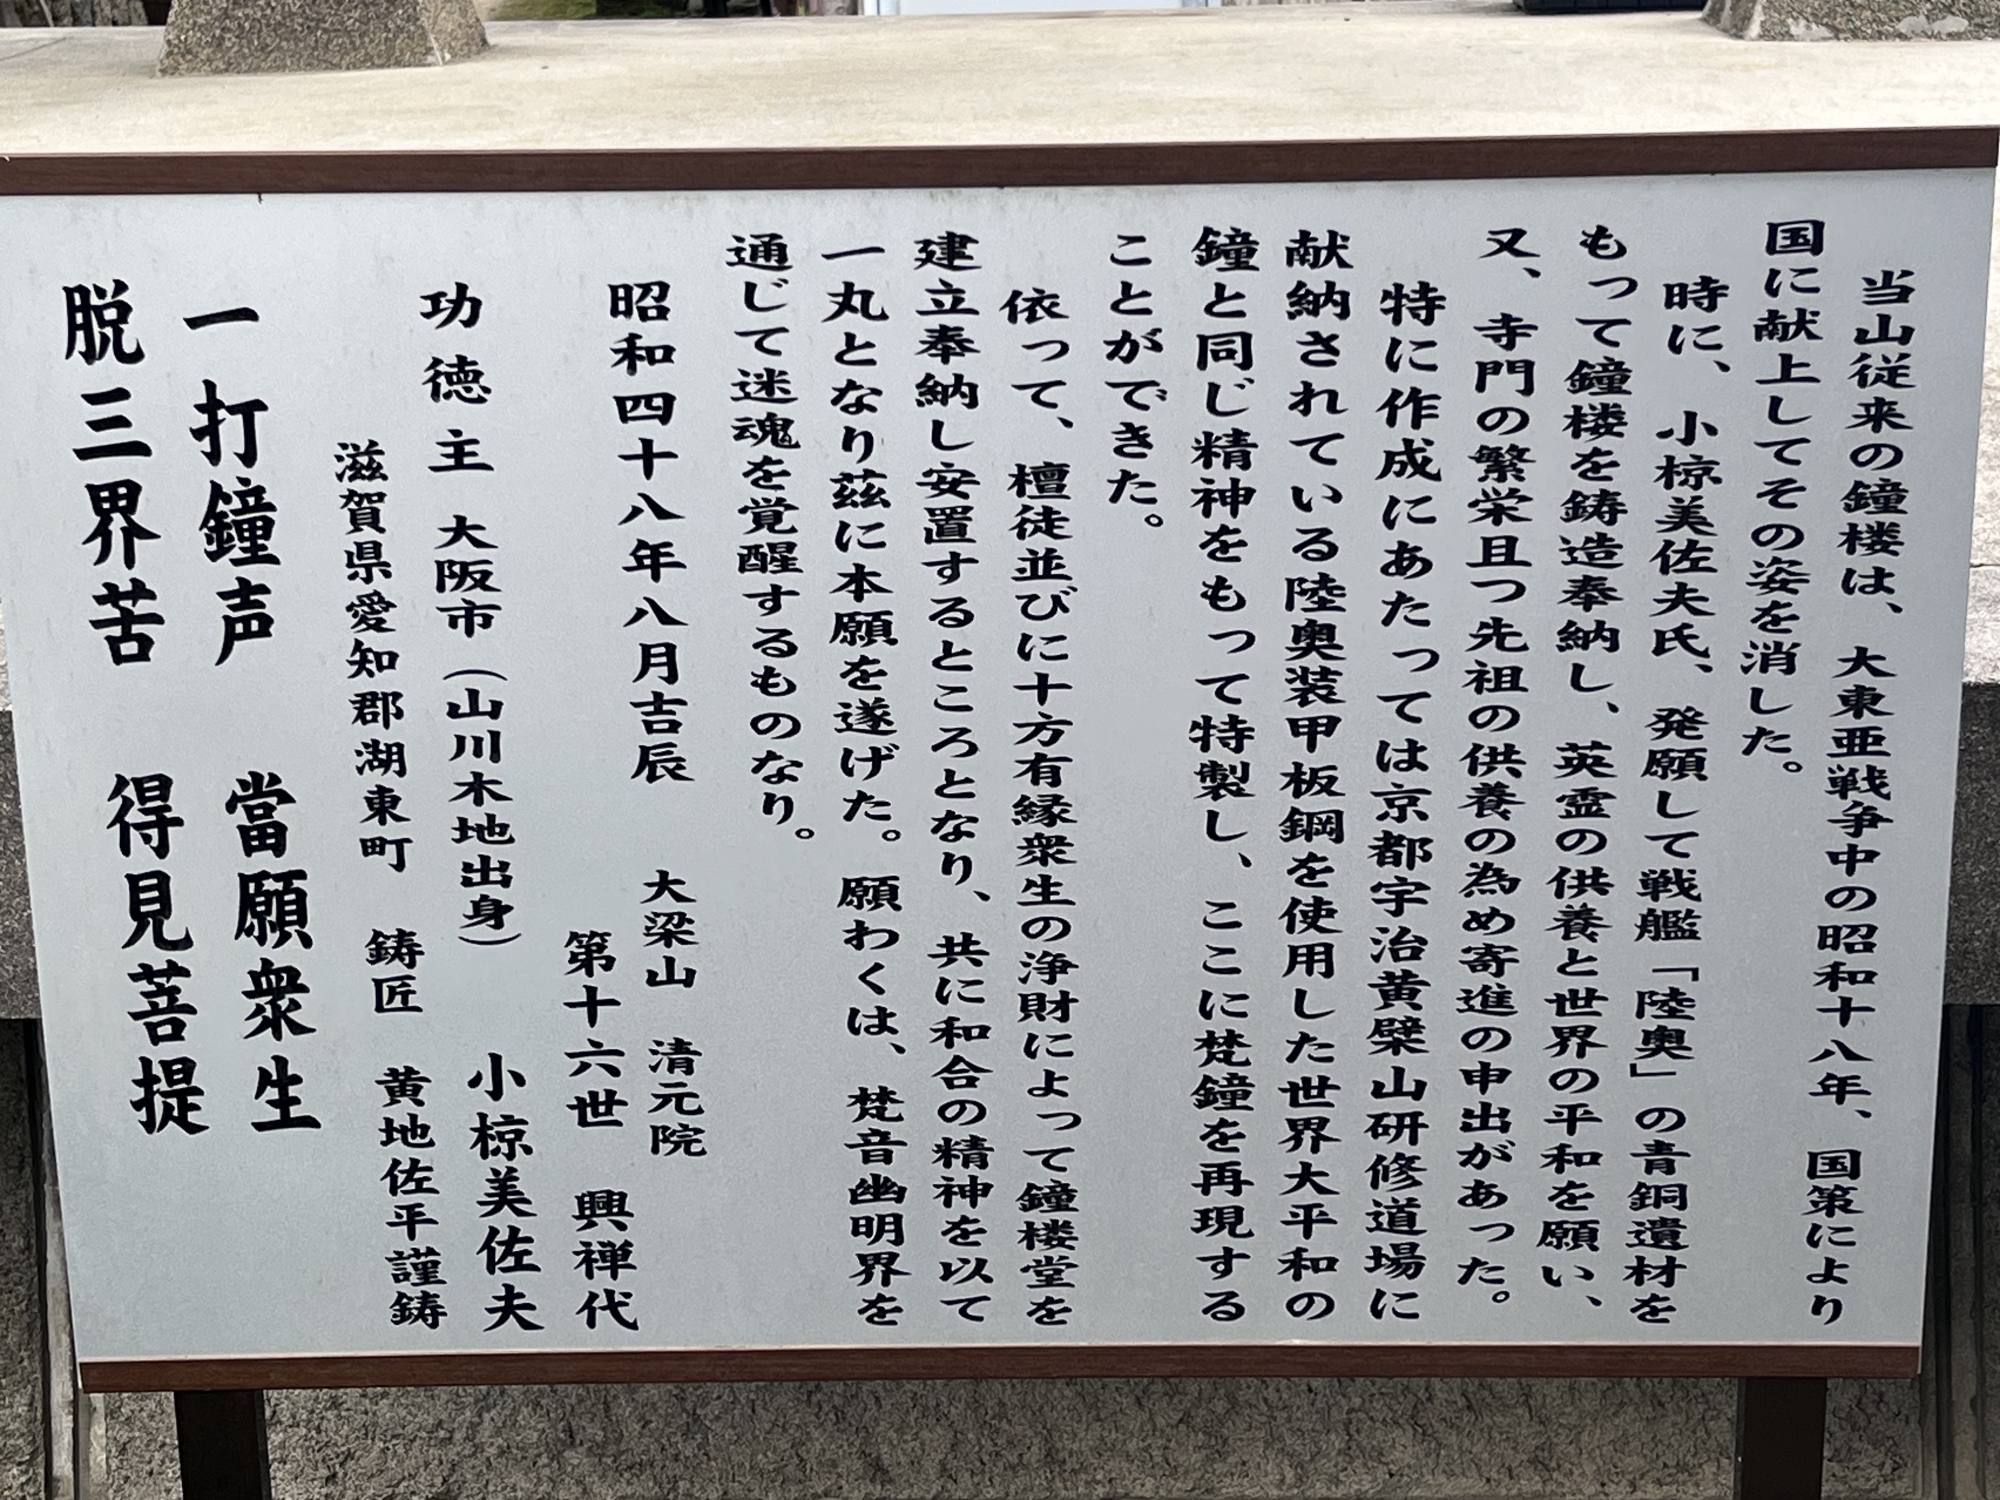 当山従来の鐘楼は、大東亜戦争中の昭和十八年、国策により
国に献上してその姿を消した。
時に、小椋美佐夫氏、発願して戦艦「陸奥」の青銅遺材を
もって鐘楼を鋳造奉納し、英霊の供養と世界の平和を願い、
又、寺門の繁栄且つ先祖の供養の為め寄進の申出があった。
特に作成にあたっては京都宇治黄檗山研修道場に
献納されている陸奥装甲板鋼を使用した世界大平和の
鐘と同じ精神をもって特製し、ここに梵鐘を再現する
ことができた。
依って、檀徒並びに十方有縁衆生の浄財によって鐘楼堂を
建立奉納し安置するところとなり、共に和合の精神を以て
一丸となり茲に本願を遂げた。願わくは、梵音幽明界を
通じて迷魂を覚醒するものなり。
昭和四十八年八月吉辰 大梁山 清元院
第十六世 興禅代
功徳主 大阪市（山川木地出身） 小椋美佐夫
滋賀県愛知郡湖東町 鋳匠 黄地佐平謹鋳
一打鐘声 當願衆生
脱三界苦 得見菩提